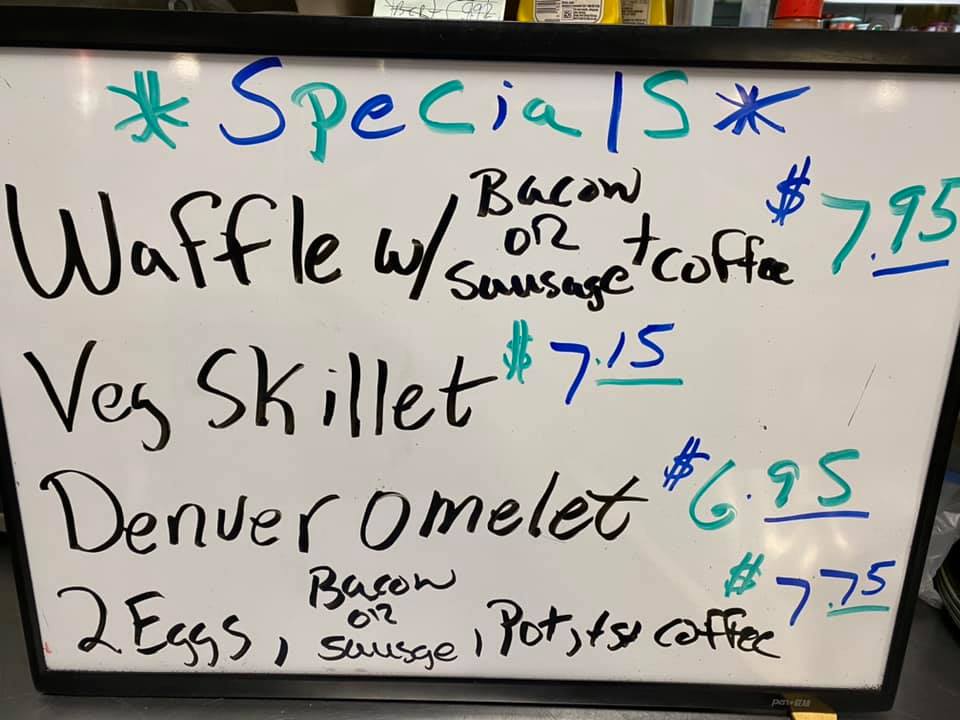 * Specials *
Waffle w/ Bacon or Sausage + coffee $7.95
Veg Skillet $7.15
Denver omelet $6.95
2 Eggs, Bacon or sausage, Pot, tst coffee $7.75
pen+GEAR